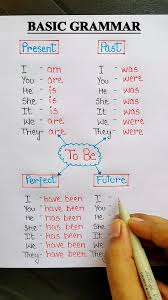 BASIC GRAMMAR
Present
I - am
You - are
He - is
She - is
It - is
We - are
They - are
Past
I - was
You - were
He - was
She - was
It - was
We - were
They - were
To Be
Perfect
I - have been
You - have been
He - has been
She - has been
It - has been
We - have been
They - have been
Future
I -
You -
He -
She -
It -
We -
They -